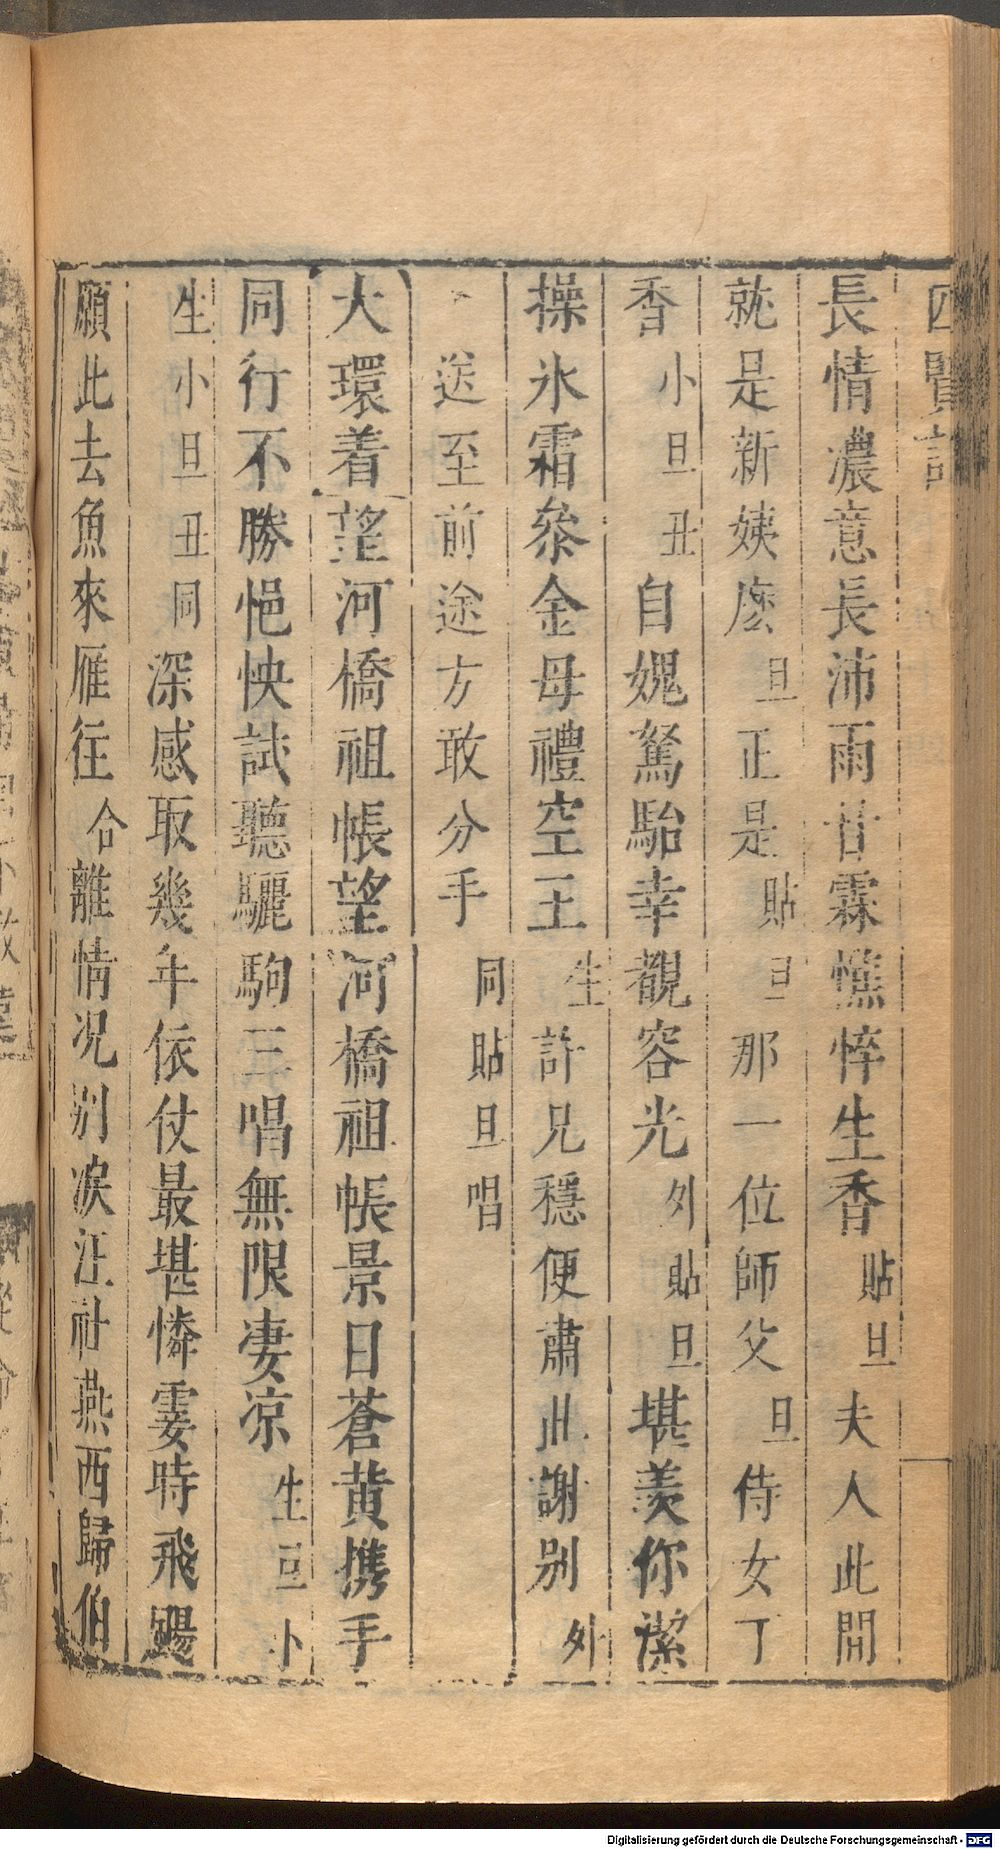 四賢記
長情濃意長沛雨甘霖憔悴生香貼旦夫人此間
就是新姨麽旦正是貼旦那一位師父旦侍女丁
香小旦丑自媿駑駘幸覩容光外貼旦堪羨你潔
操氷霜叅金母禮空王生許兄穩便肅此謝别外
送至前途方敢分手同貼旦唱
大環着望河橋祖帳望河橋祖帳景日蒼黄携手
同行不勝悒怏試聽驪駒三唱無限凄凉生旦小
生小旦丑同深感取幾年依仗最堪憐霎時飛颺
願此去魚來雁往合離情况别淚汪社燕西歸伯
Digitalisierung gefördert durch die Deutsche Forschungsgemeinschaft - DFG